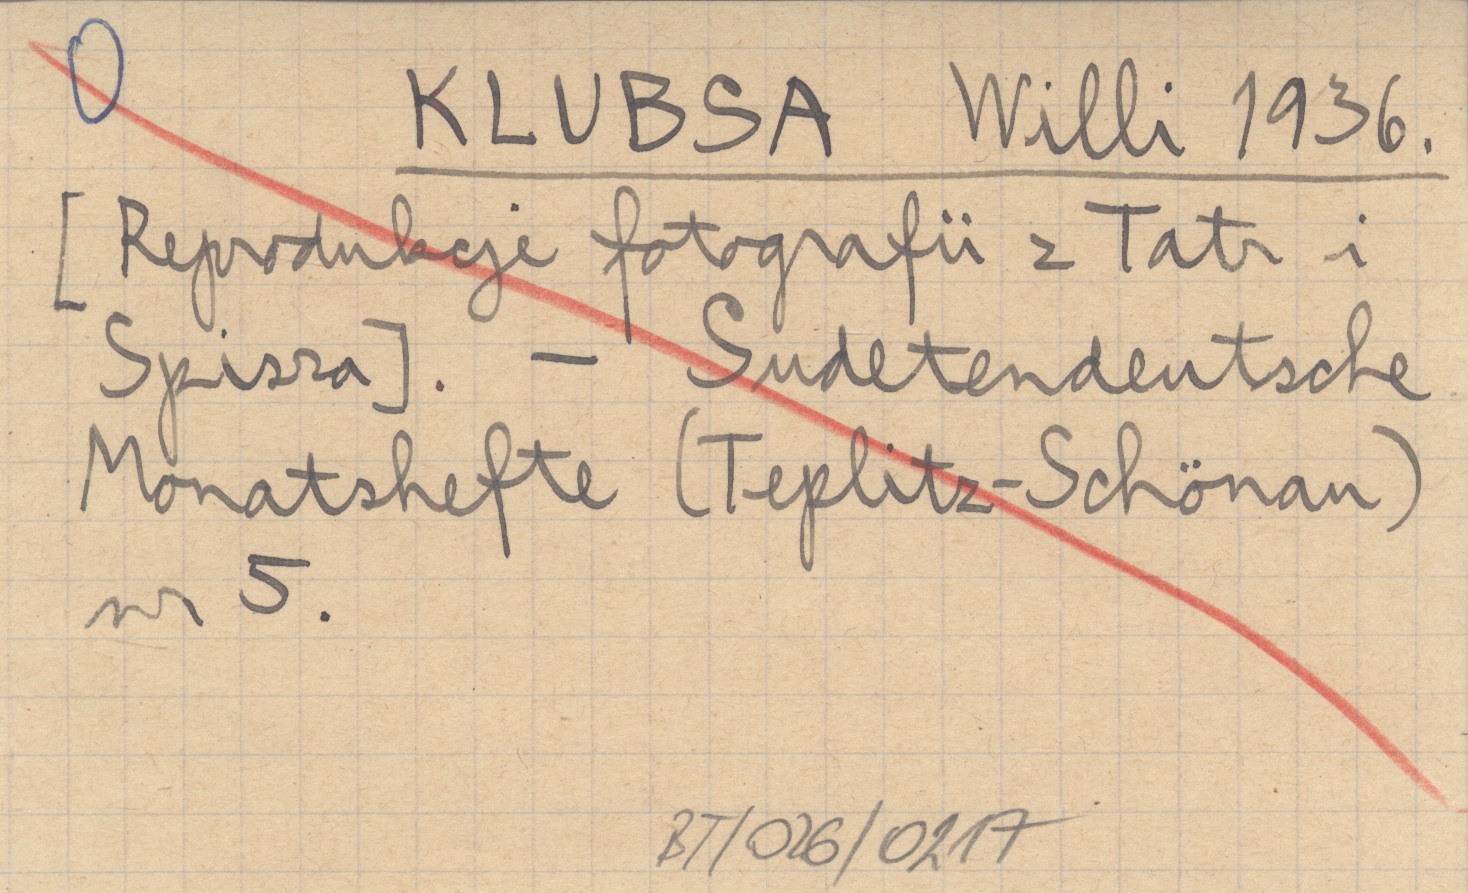 0
KLUBSA Willi 1936.
[Reprodukcje fotografii z Tatr i
Spisza]. — Sudetendeutsche
Monatshefte (Teplitz-Schönau)
nr 5.
BT/026/0217